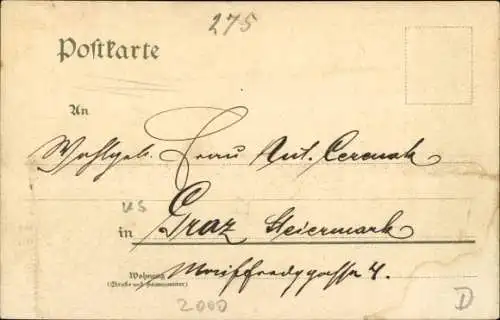 275
Postkarte
An
Wohlgeb. Frau Ant. Cermak
us
in Graz Steiermark
Wohnung 4.
(Straße und Hausnummer)
2000
D